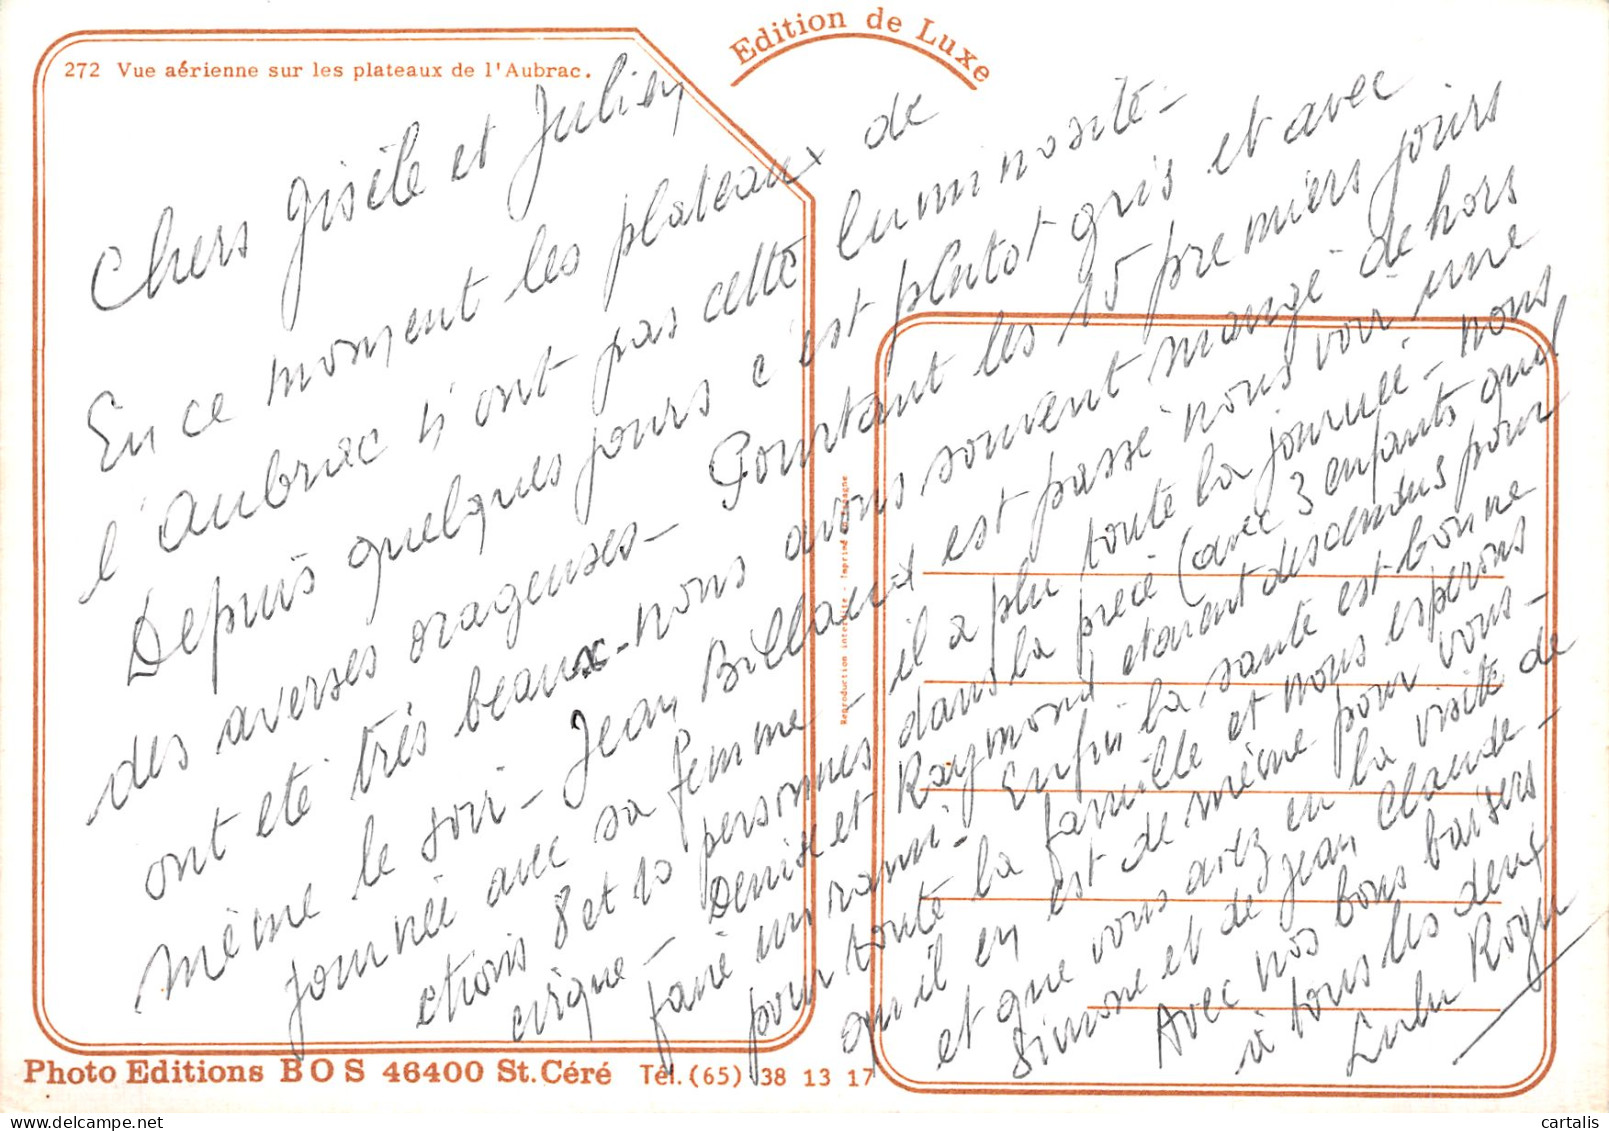 272 Vue aérienne sur les plateaux de l'Aubrac.
Edition de Luxe
Chers Gisèle et Julien
En ce moment les plateaux de
l'Aubrac n'ont pas cette luminosité-
Depuis quelques jours c'est plutot gris et avec
des averses orageuses- Pourtant les 15 premiers jours
ont eté très beaux- nous avons souvent mangé dehors
même le soir- Jean Billaux est passé nous voir une
journée avec sa femme- il a plu toute la journée- nous
etions 8 et 10 personnes dans la piece (avec 3 enfants quel
cirque- Denise et Raymond etaient descendus pour
faire un rami. Enfin la santé est bonne
pour toute la famille et nous esperons
qu'il en est de même pour vous-
et que vous avez eu la visite de
Simone et de Jean Claude-
Avec nos bons baisers
à tous les deux
Lulu Roger
Reproduction interdite - Imprimé en Espagne
Photo Editions BOS 46400 St. Céré Tél. (65) 38 13 17
cartalis